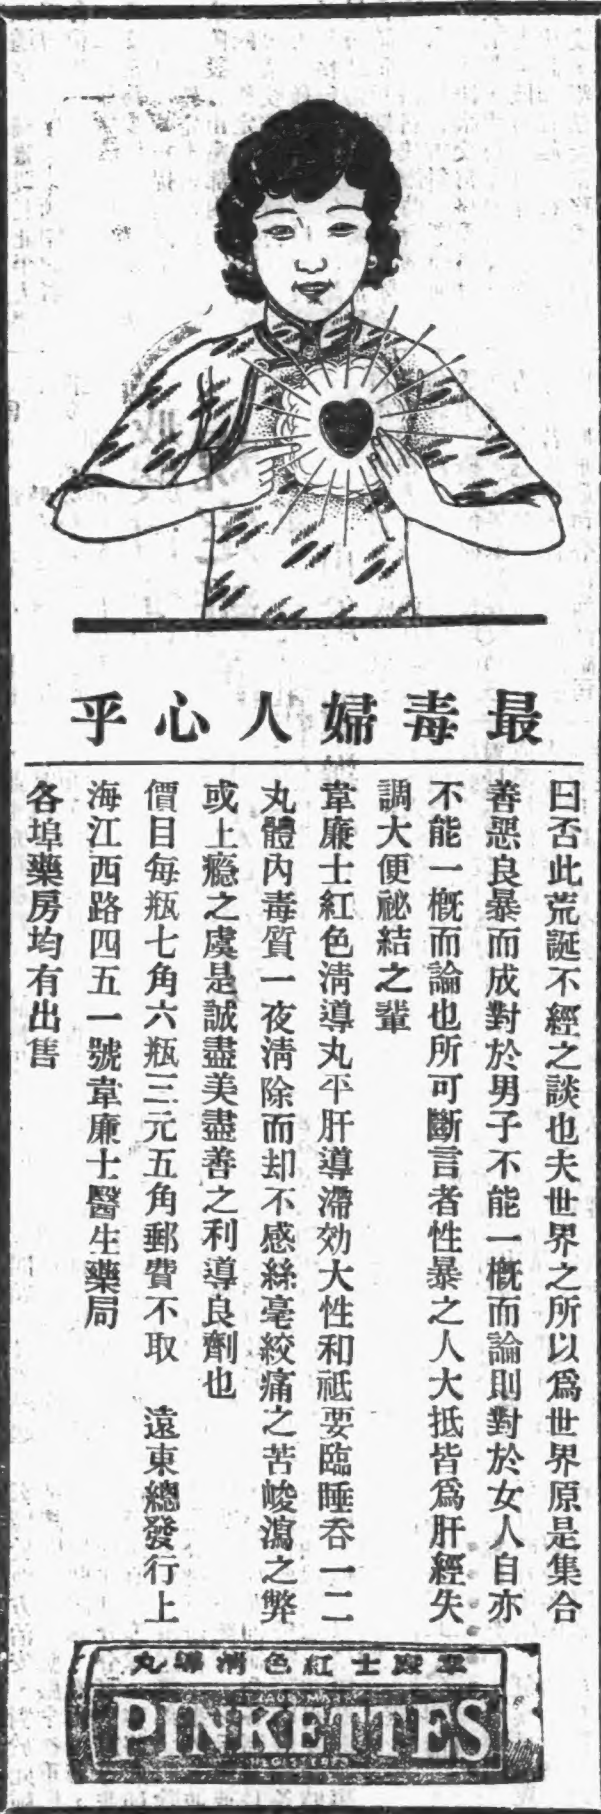 最毒婦人心乎
曰否此荒誕不經之談也夫世界之所以爲世界原是集合
善惡良暴而成對於男子不能一概而論則對於女人自亦
不能一概而論也所可斷言者性暴之人大抵皆爲肝經失
調大便祕結之輩
韋廉士紅色淸導丸平肝導滯効大性和祗要臨睡吞一二
丸體內毒質一夜淸除而却不感絲毫絞痛之苦峻瀉之弊
或上瘾之虞是誠盡美盡善之利導良劑也
價目每瓶七角六瓶三元五角郵費不取　遠東總發行上
海江西路四五一號韋廉士醫生藥局
各埠藥房均有出售
韋廉士紅色淸導丸
TRADE MARK
PINKETTES
REGISTERED